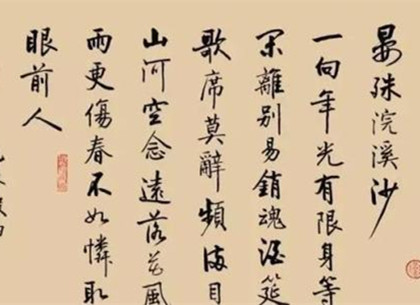 晏殊浣溪沙
一向年光有限身等
闲離别易銷魂酒筵
歌席莫辭頻滿目
山河空念遠落花風
雨更傷春不如憐取
眼前人